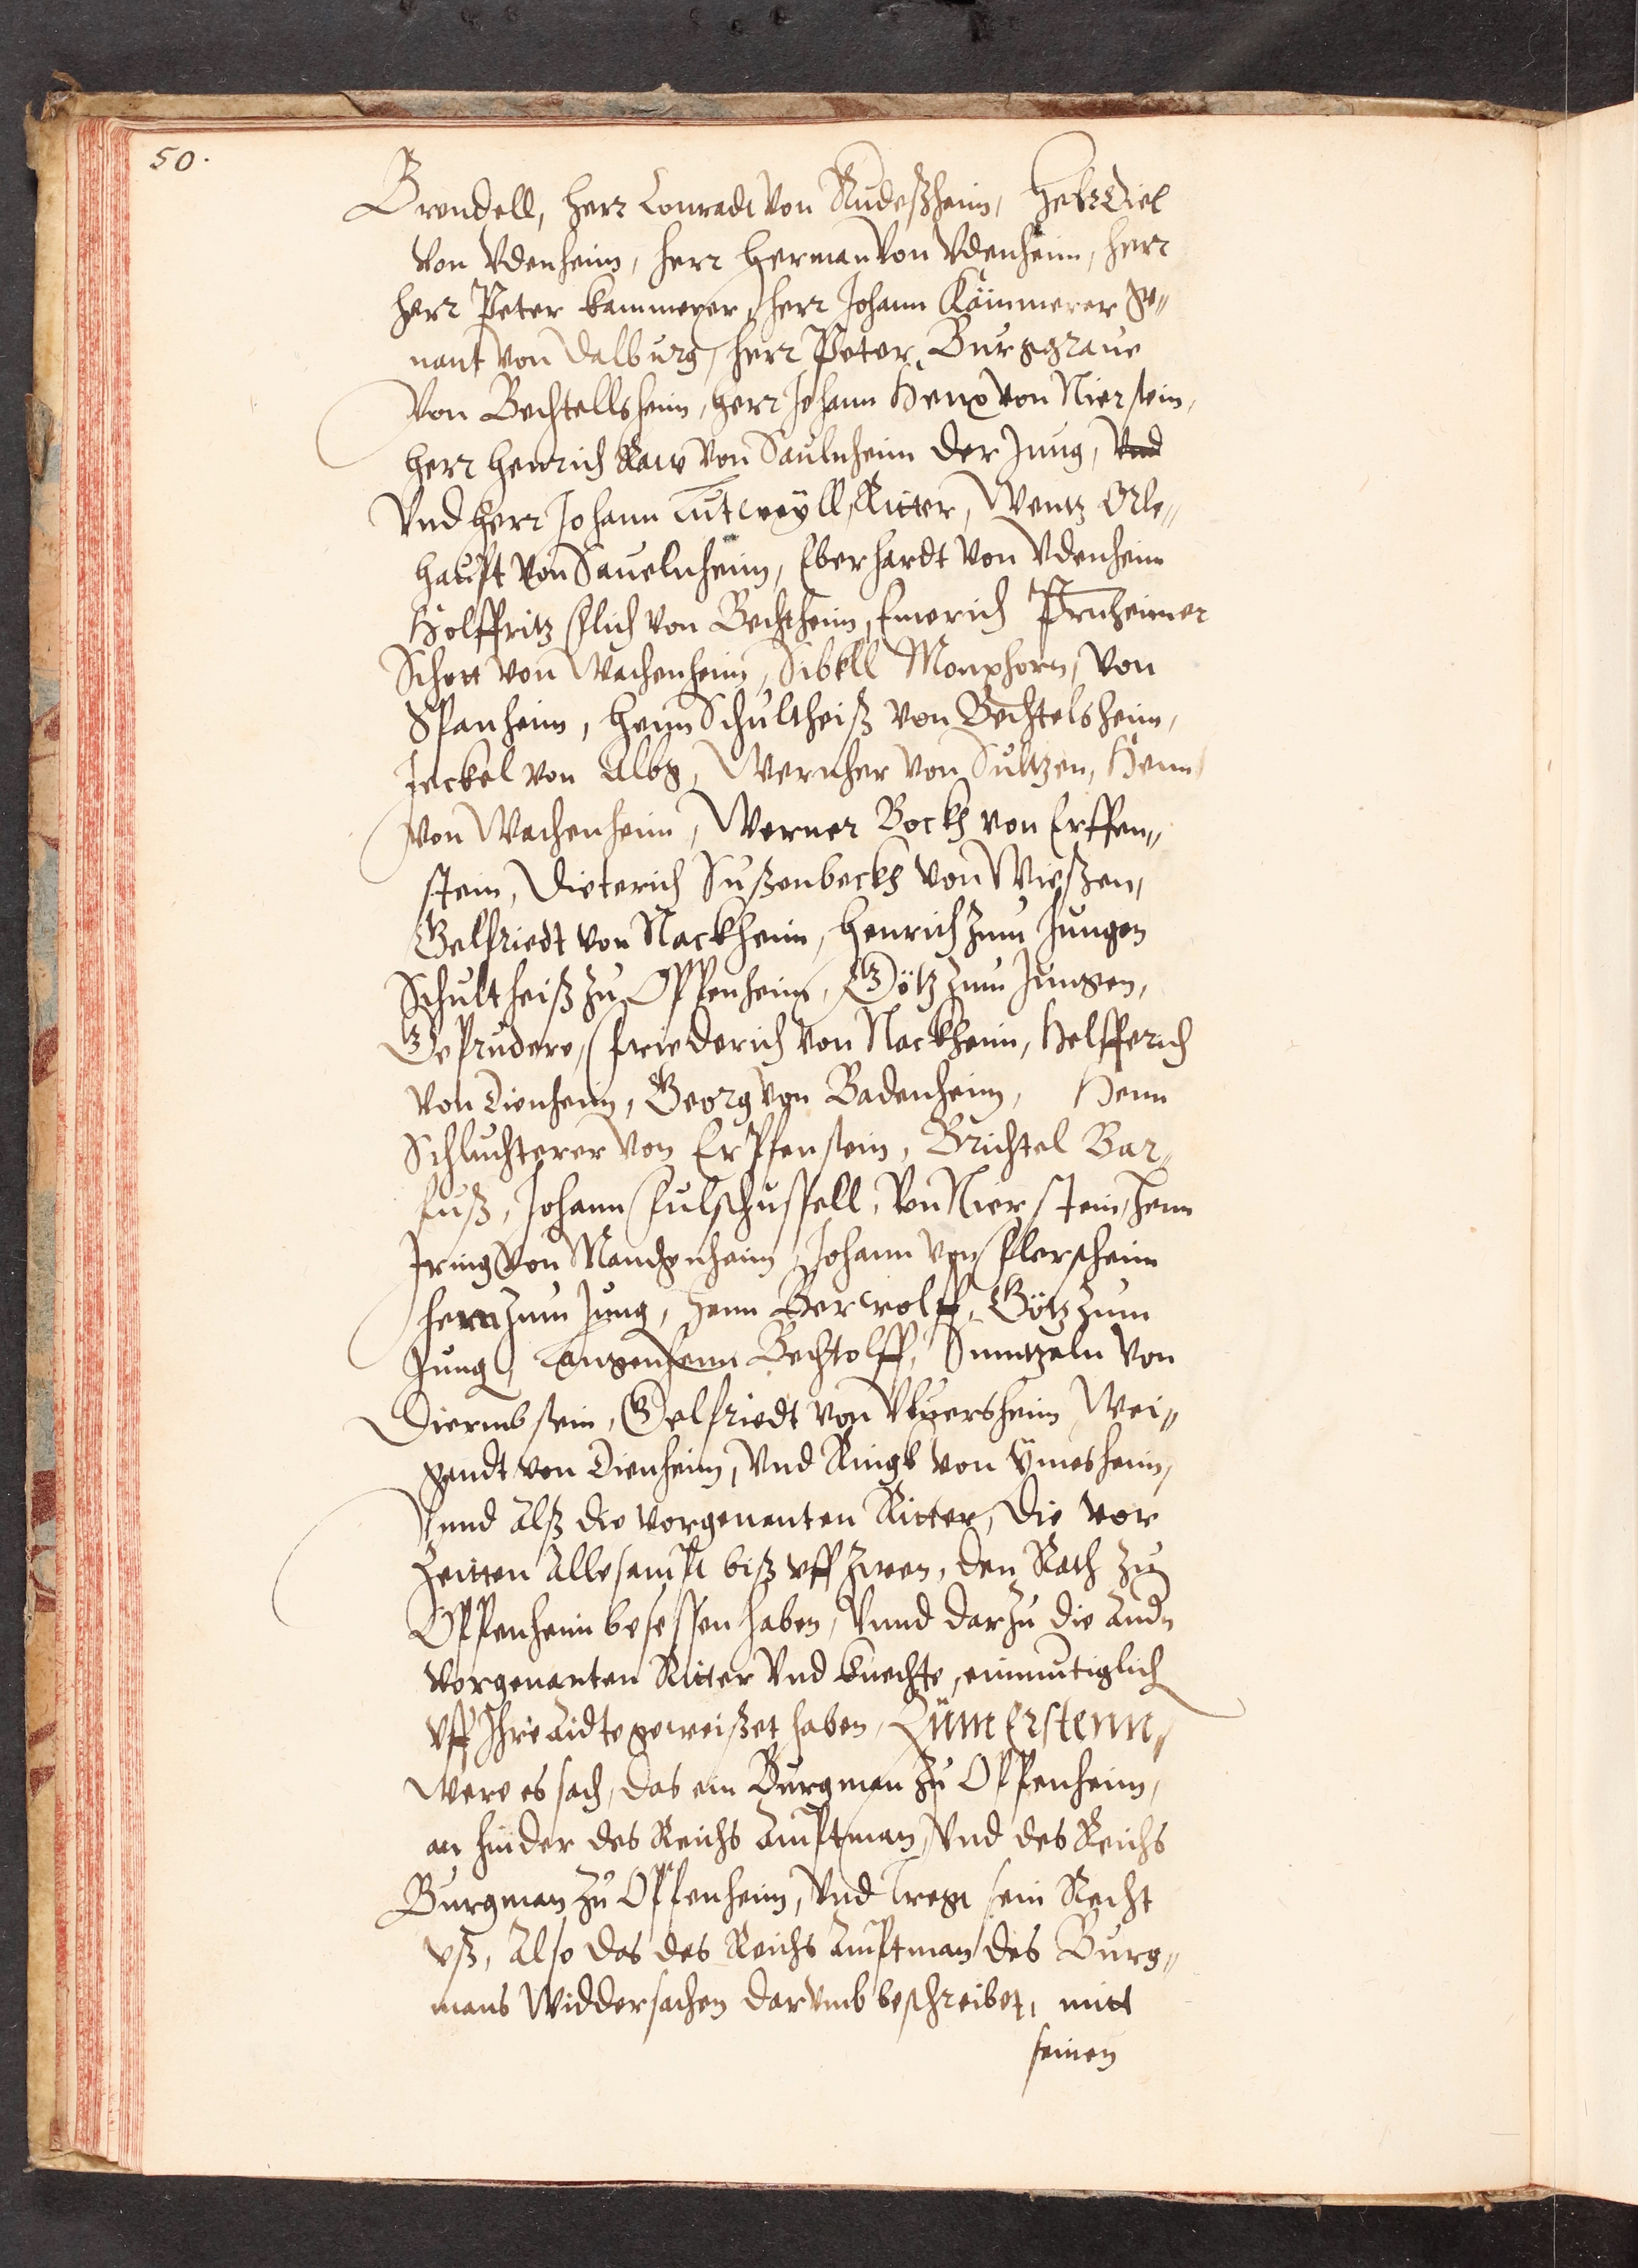 50.
Brendell, herr Conradt von Rudeßheim, herr Diel
von Vdenheim, herr Herman von Vdenheim, herr
herr Peter kammerer, herr Johann Kämmerer ge¬
nant von Dalburg, herr Peter Burggraue
Von Bechtellsheim, herr Johann Henx von Nierstein,
herr Henrich Raw von Saulnheim der Jung, vnd
Vnd herr Johann Lutweyll, Ritter, Wentz Orle¬
haupt von Sauelnheim, Eberhardt von Vdenheim
Hölffritz flich von Bechtheim, Emerich
Schott von Wachenheim, Sibell Monxhorn, von
Spanheim, Henn Schultheiß von Bechtelsheim,
Jeckel von Albg, Wernher von Sultzen, Henn
von Wachenheim, Werner Bockh von Erffen¬
stein, Dieterich Sußenbeckh von Wießen,
Gelfriedt von Nackheim, Henrich zum Jungen
Schultheiß zu Oppenheim, Götz zum Jungen,
Gebrudere, friederich von Nackheim, Helfferich
von Dienheim, Georg von Badenheim, Henn
Schluchterer von Erpfenstein, Brichtel Bar¬
fuß, Johann fulschussell, von Nierstein, Henn
Iring von Manchenheim, Johann von flersheim
henn zum Jung, Henn Berwolff, Götz zum
Jung, Langenhenn Bechtolff, von
Diermbstein, Gelfriedt von Wei¬
gandt von Dienheim, vnd Ringk von Ymesheim,
Vnnd alß die vorgenanten Ritter, die vor
Zeitten allesampt biß vff zwen, den Rath zu
Oppenheim besessen haben, vnnd darzu die andn
vorgenanten Ritter vnd knechte, einmutiglich
vff Ihre Aidte geweißet haben, Zum Erstenn,
Were es sach, das ein Burgman zu Oppenheim,
an hinder des Reichs Amptman, vnd des Reichs
Burgman zu Oppenheim, vnd tregt sein Recht
vß, Also das des Reichs Amptman des Burg¬
mans Widdersachen darumb beschreibet, mitt
seinen